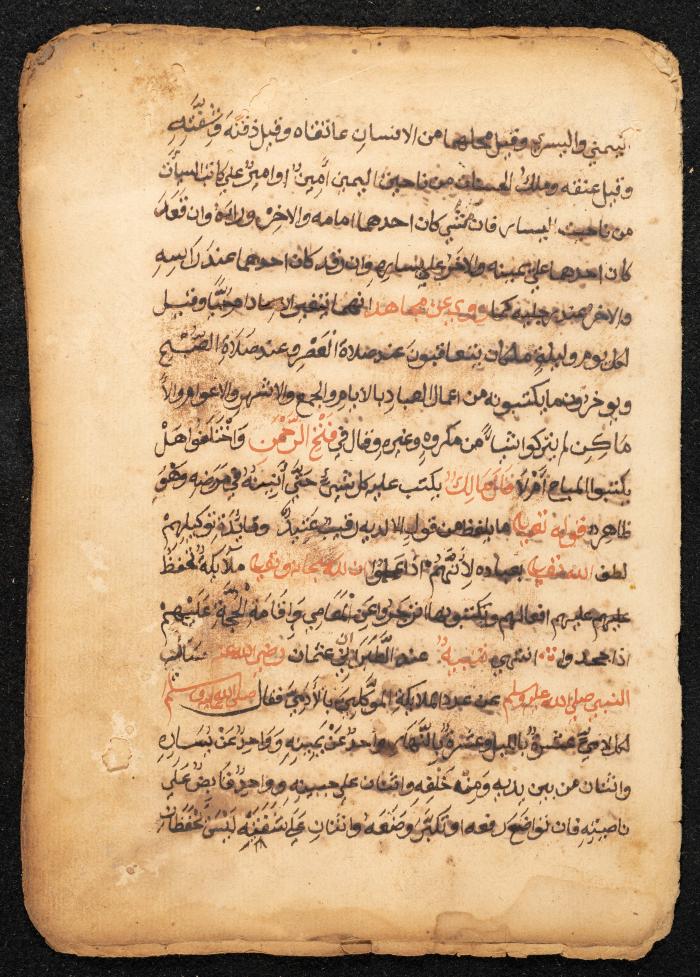 اليمني واليسرى وقيل محلهما من الانسان عاتقاه وقيل ذقنه وشفته
وقيل عنقه وملك الحسنات من ناحية اليمين أمين او امير على كاتب السيات
من ناحية اليسار فان مشي كان احدهما امامه والاخر وراءه وان قعد
كان احدهما على يمينه والاخر على يساره وان رقد كان احدهما عند راسه
والاخر عند رجليه كما روي عن مجاهد انهما
لكل يوم وليلة ملكان يتعاقبون عند صلاة العصر وعند صلاة الصبح
ويوخرون ما يكتبونه من اعمال العباد بالايام والجمع والاشهر والاعوام والا
ماكن لم يتركوا شيا من مكروه وغيره وقال في فتح الرحمن واختلفوا هل
يكتبوا المباح أم لا قال مالك يكتب عليه كل شيء حتى أنينه في مرضه وهو
ظاهره قوله تعالى ما يلفظ من قول الا لديه رقيب عتيد وفائدة توكيلهم
لطف الله تعالى بعباده لأنهم اذا علموا ان الله سبحانه وتعالى ملايكة لحفظ
عليهم عليهم افعالهم ويكتبونها انزجروا عن المعاصي واقامة الحجة عليهم
اذا جحدوا انتهى تنبيه عند الطبراني ان عثمان رضي الله عنه سأل
النبي صلى الله عليه وسلم عن عدد الملايكة الموكلين بالأدمي فقال صلى الله عليه وسلم
لكل ادمي عشرة بالليل وعشرة بالنهار واحد عن يمينه وواحد عن يساره
واثنان من بين يديه ومن خلفه واثنان على جبينه وواحد قابض على
ناصيته فان تواضع رفعه او تكبر وضعه واثنان على شفتيه ليس يحفظان